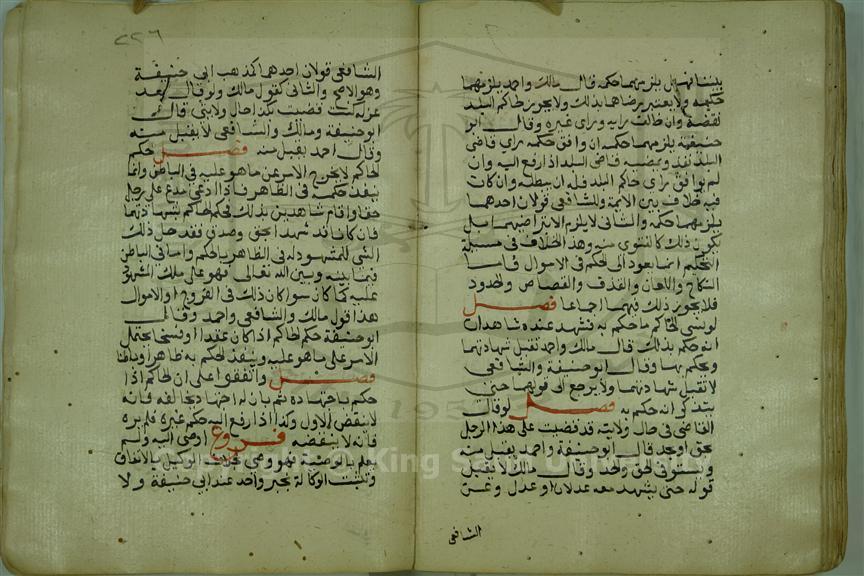 بيننا فهل يلزمهما حكمه قال مالك واحمد يلزمهما
حكمه ولا يعتبر رضاهما بذلك ولا يجوز لحاكم البلد
نقضه وان خالف رايه وراى غيره وقال ابو
حنيفة يلزمهما حكمه ان وافق حكمه راى قاضى
البلد نفذ ويمضيه قاضى البلد اذا رفع اليه وان
لم يوافق راى حاكم البلد فله ان يبطله وان كان
فيه خلاف بين الائمة وللشافعى قولان احدهما
يلزمهما حكمه والثانى لا يلزم الا بتراضيهما بل
يكون ذلك كالفتوى منه وهذا الخلاف فى مسئلة
التحكيم انما يعود الى الحكم فى الاموال فاما
النكاح واللعان والقذف والقصاص والحدود
فلا يجوز ذلك فيهما اجماعا فصل
لو نسى الحاكم ما حكم به فشهد عنده شاهدان
انه حكم بذلك قال مالك واحمد تقبل شهادتهما
ويحكم بها وقال ابو حنيفة والشافعى
لا تقبل شهادتهما ولا يرجع الى قولهما حتى
يتذكر انه حكم به فصل لو قال
القاضى فى حال ولايته قد قضيت على هذا الرجل
بحق او بحد قال ابو حنيفة واحمد يقبل منه
ويستوفى الحق والحد وقال مالك لا يقبل
قوله حتى يشهد معه عدلان او عدل وعن
الشافعى
٢٢٦
الشافعى قولان احدهما كمذهب ابى حنيفة
وهو الاصح والثانى كقول مالك ولو قال بعد
عزله كنت قضيت بكذا حال ولايتى قال
ابو حنيفة ومالك والشافعى لا يقبل منه
وقال احمد يقبل منه فصل حكم
الحاكم لا يخرج الامر عن ما هو عليه فى الباطن وانما
ينفذ حكمه فى الظاهر فاذا ادعى مدع على رجل
حقا واقام شاهدين بذلك فحكم الحاكم بشهادتهما
فان كانا قد شهدا بحق وصدق فقد حل ذلك
الشى للمشهود له فى الظاهر بالحكم واما فى الباطن
فبما بينه وبين الله تعالى فهو على ملك المشهود
عليه كما كان سوا كان ذلك فى الفروج او الاموال
هذا قول مالك والشافعى واحمد وقال
ابو حنيفة حكم الحاكم اذا كان عقدا او فسخا يحتمل
الامر على ما هو عليه وينفذ الحكم به ظاهرا وباطنا
فصل واتفقوا على ان الحاكم اذا
حكم باجتهاده ثم بان له اجتهاد يخالفه فانه
لا ينقض الاول وكذا اذا رفع اليه حكم غيره فلم يره
فانه لا ينقضه فروع اوصى اليه ولم
يعلم بالوصية فهو وصى بخلاف الوكيل بالاتفاق
وتثبت الوكالة بخبر واحد عند ابى حنيفة ولا